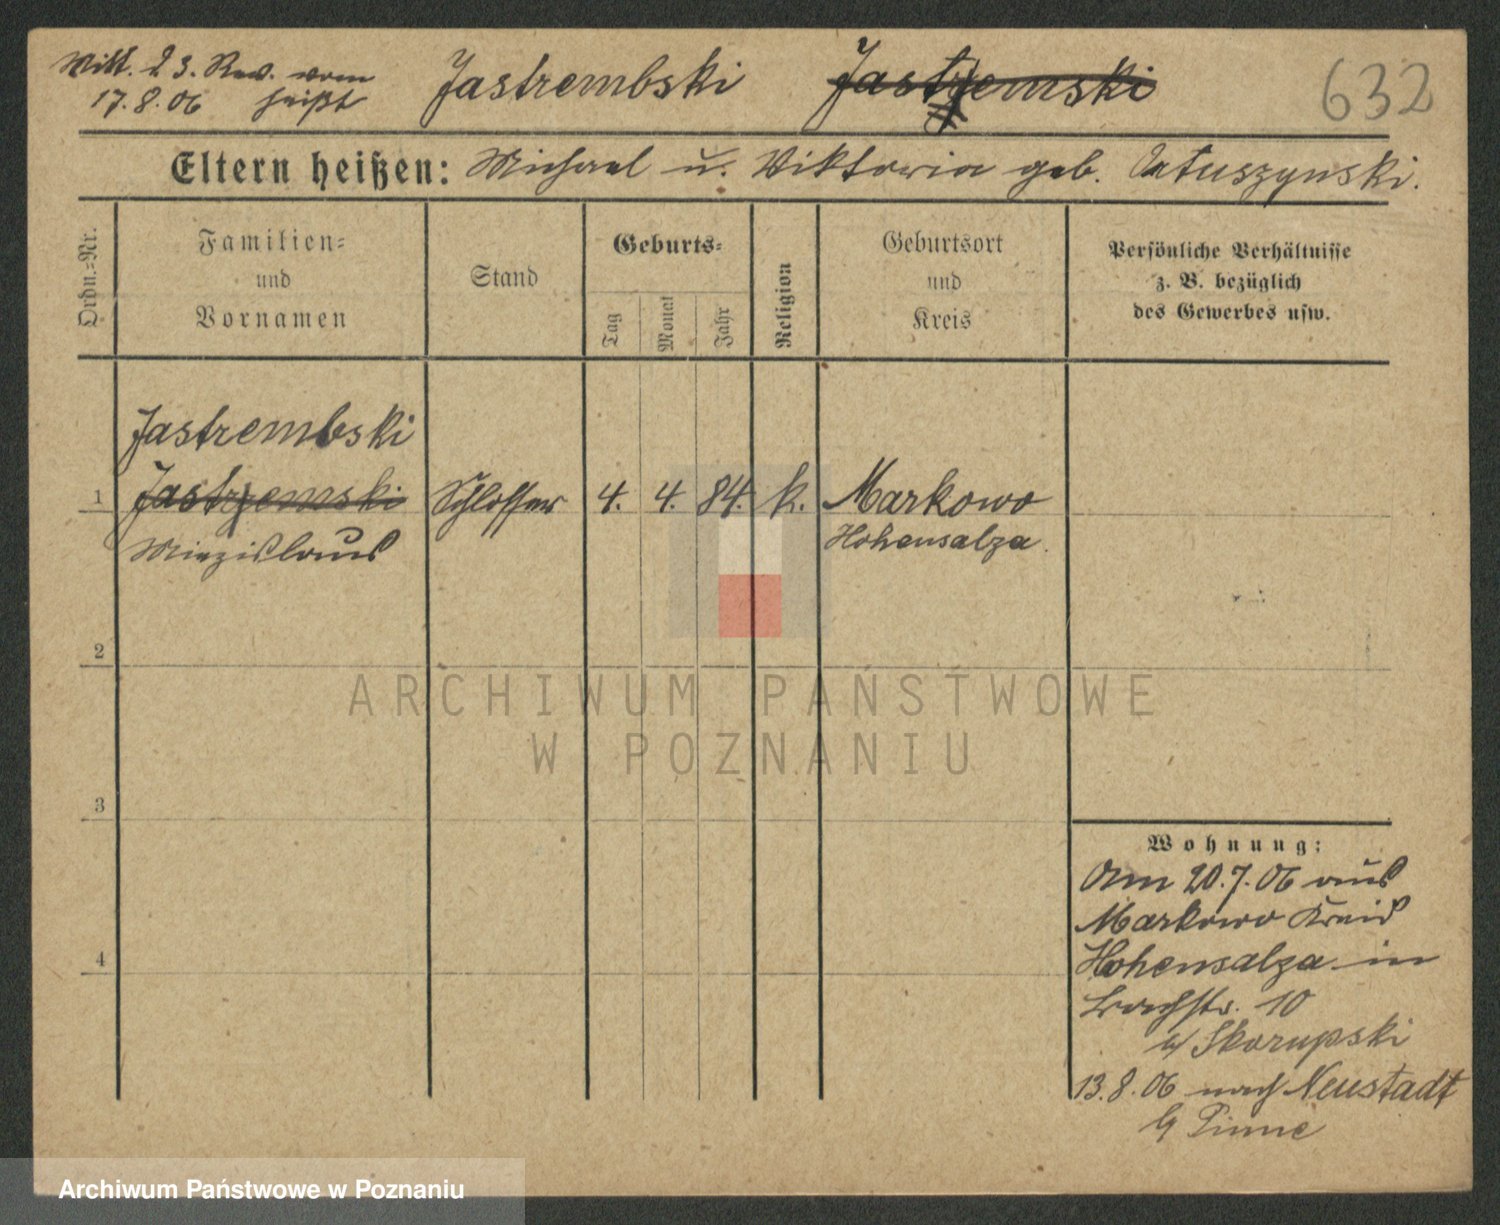 Mitt. 23. Rev. vom
17.8.06 heißt
Jastrembski Jastrzemski 632
Eltern heißen: Michael u. Viktoria geb. Ratuszynski.
Ordn.=Nr.
Familien=
und
Vornamen
Stand
Geburts=
Tag
Monat
Jahr
Religion
Geburtsort
und
Kreis
Persönliche Verhältnisse
z. B. bezüglich
des Gewerbes usw.
Jastrembski
1 Jastrzemski Schlosser 4. 4. 84. k. Markowo
Miezislaus Hohensalza.
2
ARCHIWUM PAŃSTWOWE
W POZNANIU
3
Wohnung:
Am 20.7.06 aus
Markowo Kreis
4 Hohensalza in
10
b/ Skorupski
13.8.06 nach Neustadt
b/ Pinne
Archiwum Państwowe w Poznaniu